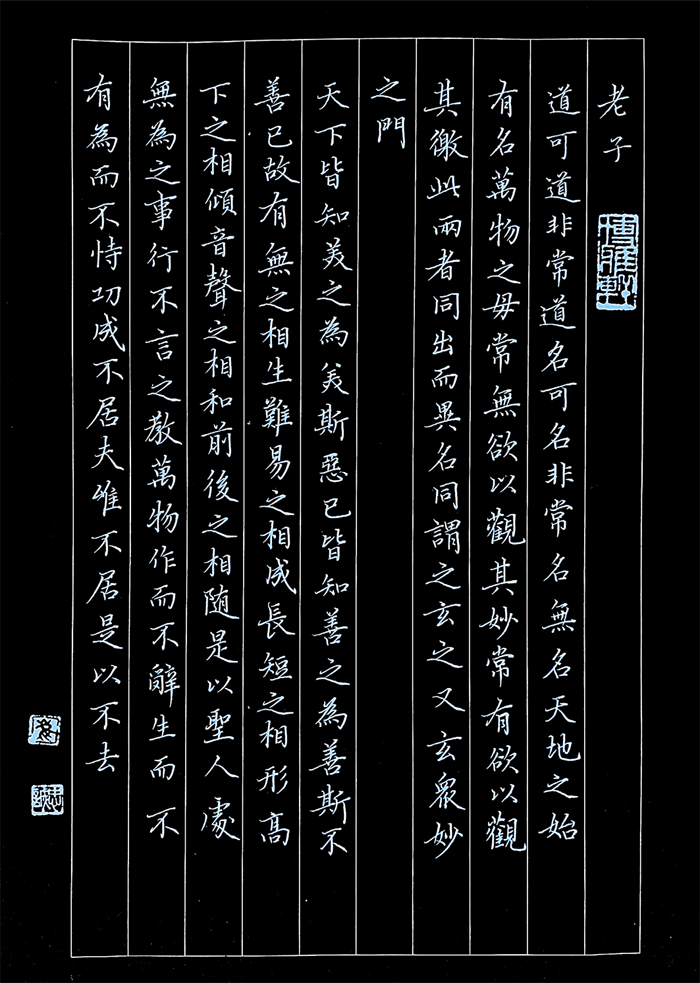 老子
道可道非常道名可名非常名無名天地之始
有名萬物之毋常無欲以觀其妙常有欲以觀
其徼此兩者同出而異名同謂之玄之又玄衆妙
之門
天下皆知美之為美斯惡已皆知善之為善斯不
善已故有無之相生難易之相成長短之相形高
下之相傾音聲之相和前後之相随是以聖人處
無為之事行不言之教萬物作而不辭生而不
有為而不恃功成不居夫惟不居是以不去